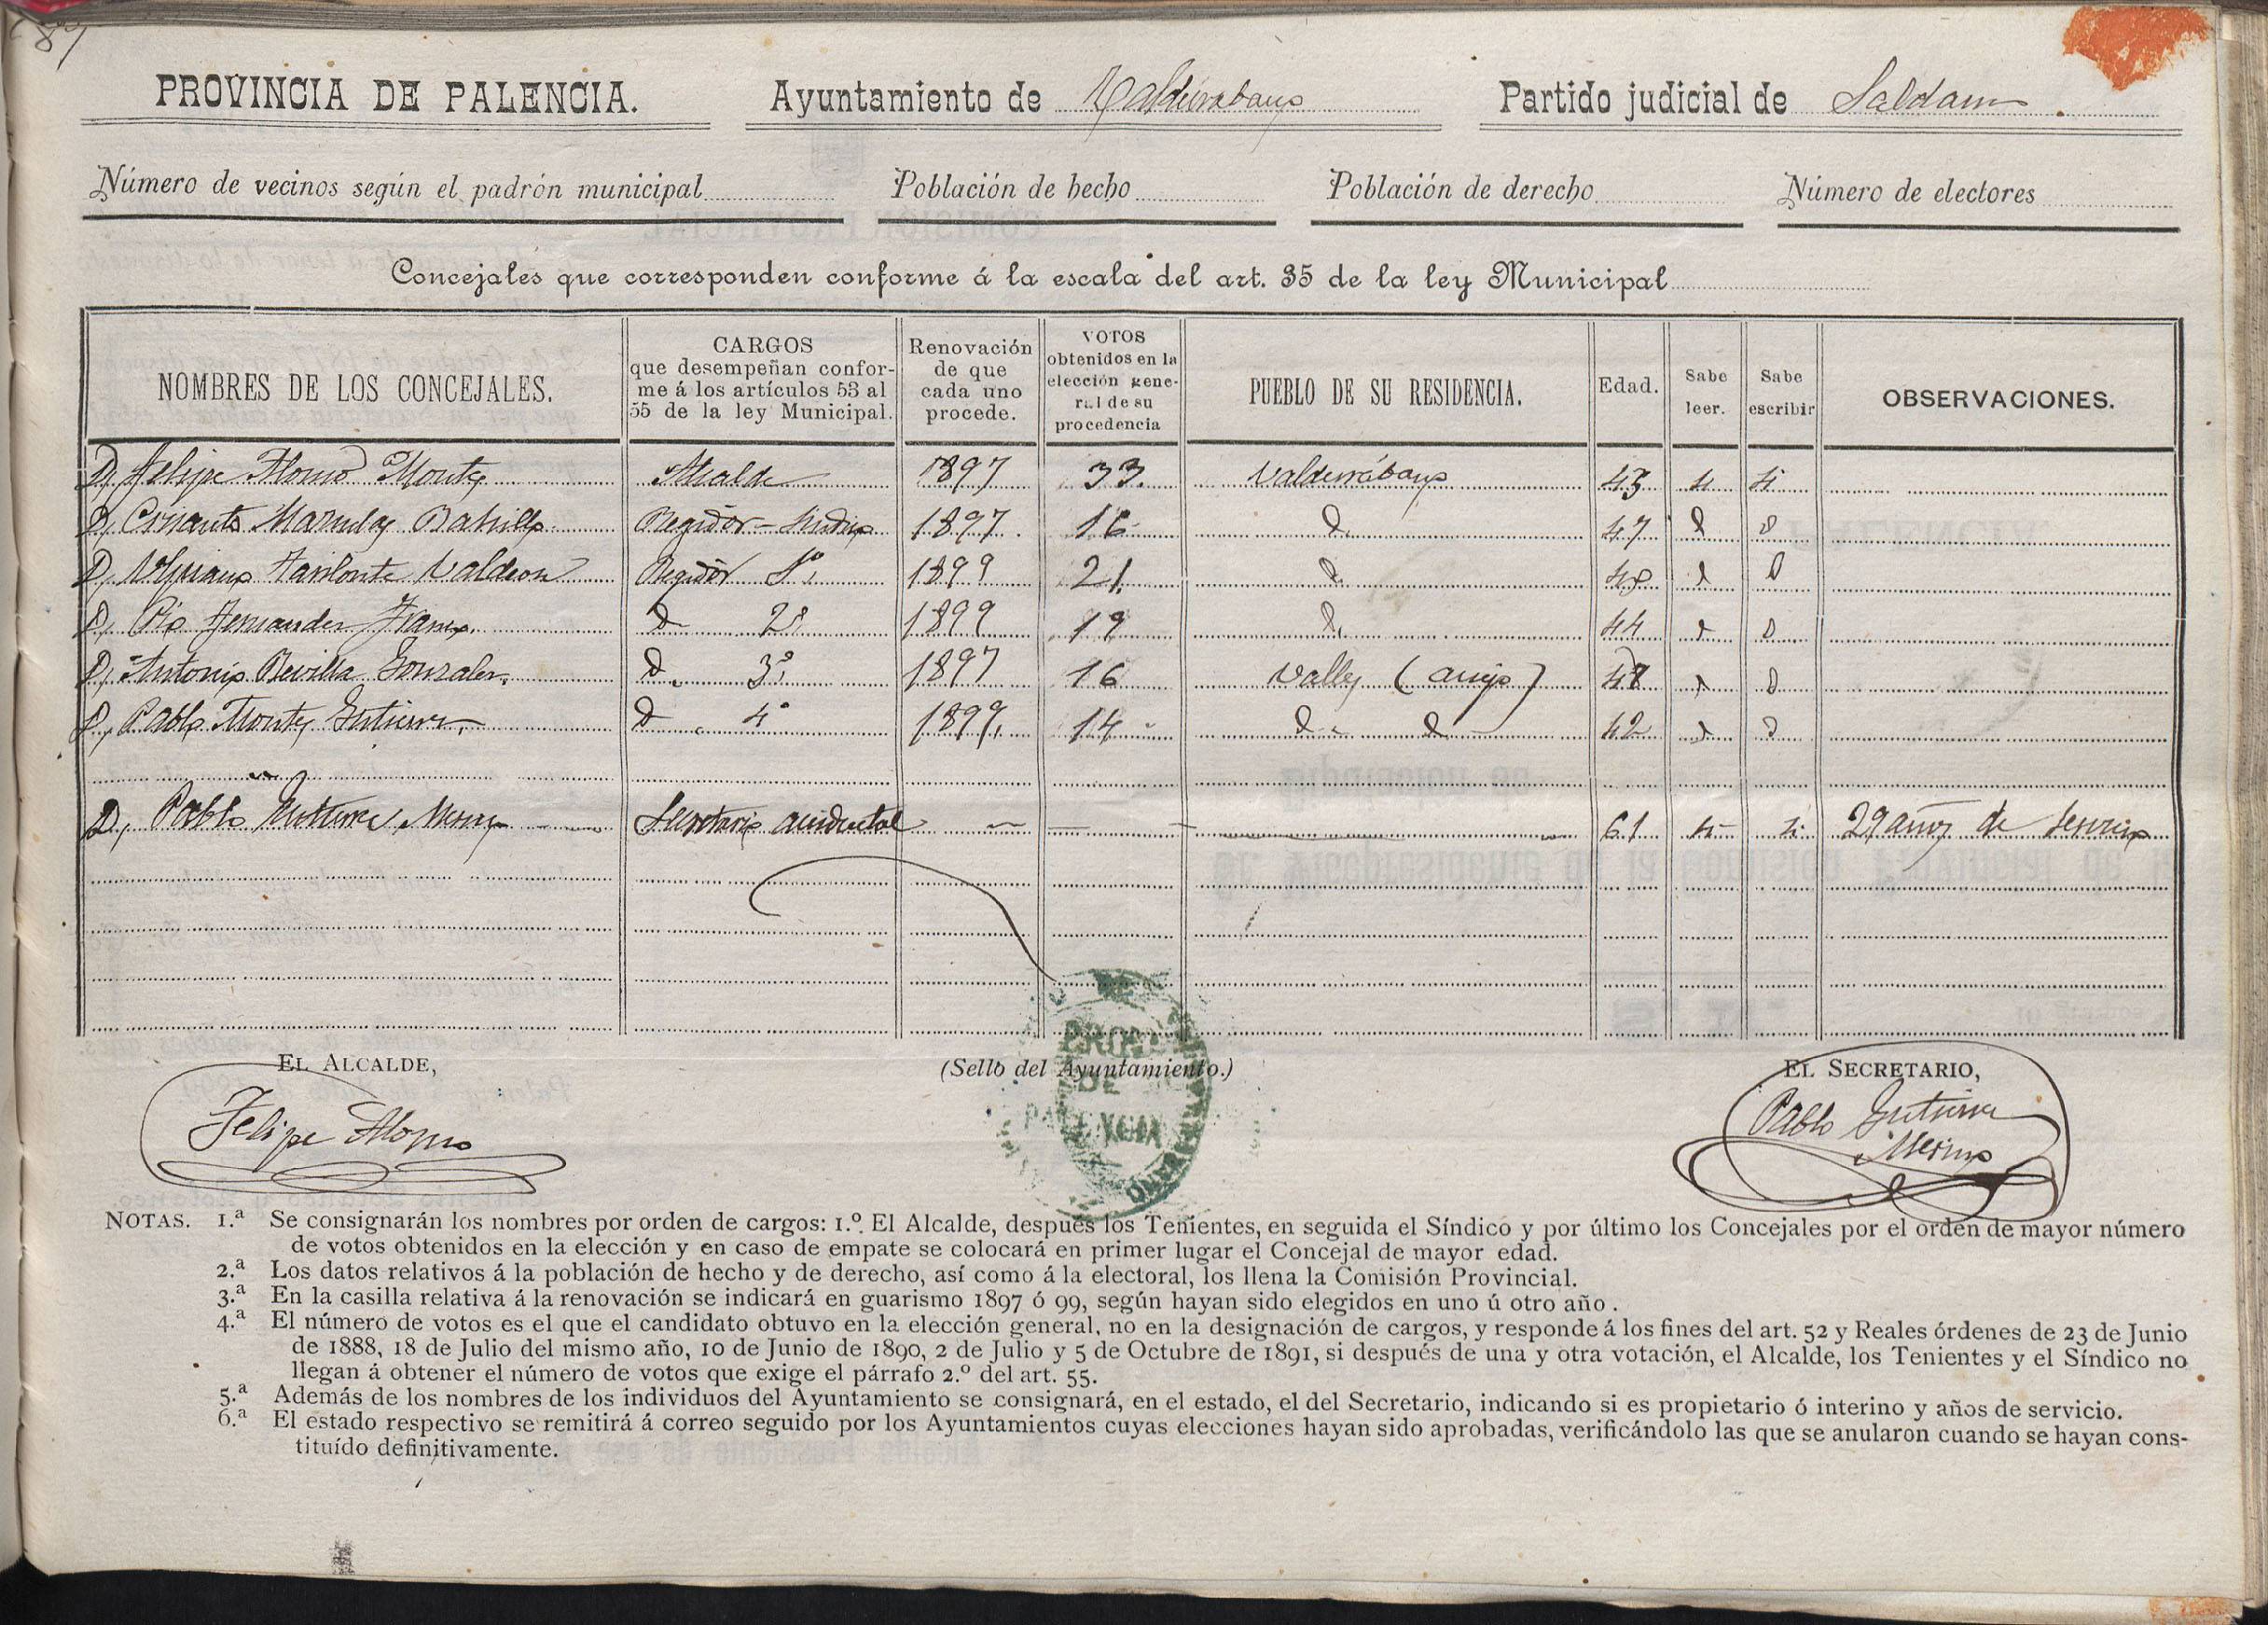 87
PROVINCIA DE PALENCIA. Ayuntamiento de Valderrábano Partido judicial de Saldaña
Número de vecinos según el padrón municipal Población de hecho Población de derecho Número de electores
Concejales que corresponden conforme á la escala del art. 35 de la ley Municipal
NOMBRES DE LOS CONCEJALES. CARGOS que desempeñan conforme á los artículos 53 al 55 de la ley Municipal. Renovación de que cada uno procede. VOTOS obtenidos en la elección general de su procedencia PUEBLO DE SU RESIDENCIA. Edad. Sabe leer. Sabe escribir OBSERVACIONES.
D. Felipe Alonso Montes Alcalde 1897 33. Valderrábano 45 si si
D. Marcos Regidor-Síndico 1897 16 d. 47 d d
D. Tarilonte Valdeon Regidor 1º 1899 21. d. 48 d d
D. Pio Fernandez Franco. d 2º 1899 19 d. 44 d d
D. Antonio Revilla Gonzalez. d. 3º 1897 16 Valles (anejo) 48 d d
D. Pablo Montes Gutierrez. d. 4º 1899. 14 d. d 42 d d
D. Pablo Gutierrez Merino Secretario accidental 61 si si 29 años de servicio
EL ALCALDE, (Sello del Ayuntamiento.) EL SECRETARIO,
PROV.A DE PALENCIA
Felipe Alonso Pablo Gutierrez
Merino
NOTAS. 1.ª Se consignarán los nombres por orden de cargos: 1.º El Alcalde, después los Tenientes, en seguida el Síndico y por último los Concejales por el orden de mayor número
de votos obtenidos en la elección y en caso de empate se colocará en primer lugar el Concejal de mayor edad.
2.ª Los datos relativos á la población de hecho y de derecho, así como á la electoral, los llena la Comisión Provincial.
3.ª En la casilla relativa á la renovación se indicará en guarismo 1897 ó 99, según hayan sido elegidos en uno ú otro año.
4.ª El número de votos es el que el candidato obtuvo en la elección general, no en la designación de cargos, y responde á los fines del art. 52 y Reales órdenes de 23 de Junio
de 1888, 18 de Julio del mismo año, 10 de Junio de 1890, 2 de Julio y 5 de Octubre de 1891, si después de una y otra votación, el Alcalde, los Tenientes y el Síndico no
llegan á obtener el número de votos que exige el párrafo 2.º del art. 55.
5.ª Además de los nombres de los individuos del Ayuntamiento se consignará, en el estado, el del Secretario, indicando si es propietario ó interino y años de servicio.
6.ª El estado respectivo se remitirá á correo seguido por los Ayuntamientos cuyas elecciones hayan sido aprobadas, verificándolo las que se anularon cuando se hayan cons-
tituído definitivamente.